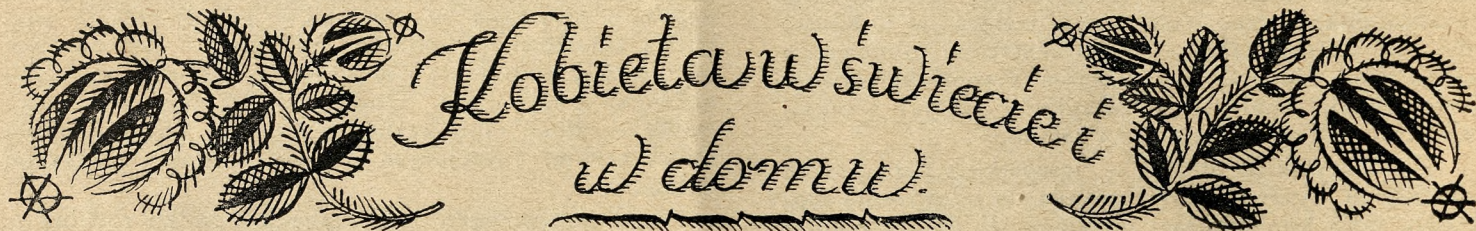 Kobieta w świecie i
w domu.